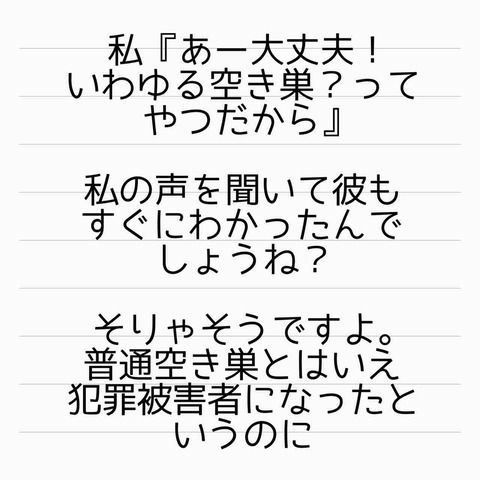 私『あー大丈夫！
いわゆる空き巣？って
やつだから』
私の声を聞いて彼も
すぐにわかったんで
しょうね？
そりゃそうですよ。
普通空き巣とはいえ
犯罪被害者になったと
いうのに